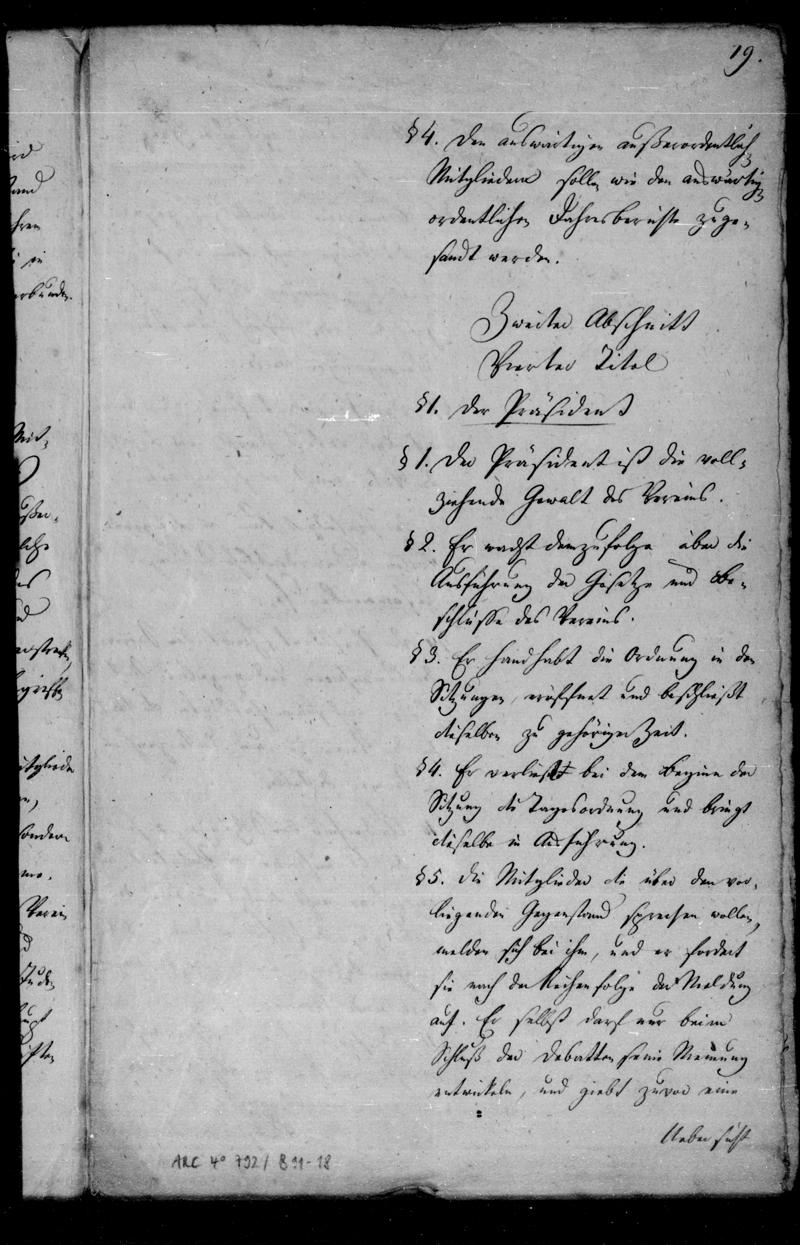 19.
§4. Den auswärtigen außerordentlich
Mitgliedern sollen wie den auswärtig
ordentlichen Jahresberichte zuge-
sandt werden.
Zweiter Abschnitt
Vierter Titel
§1. Der Präsident
§1. Der Präsident ist die voll-
ziehende Gewalt des Vereins.
§2. Er wacht demzufolge über die
Ausführung der Gesetze und Be-
schlüsse des Vereins.
§3. Er handhabt die Ordnung in den
Sitzungen, eröffnet und beschließt
dieselben zu gehöriger Zeit.
§4. Er verließt bei dem Beginn der
Sitzung die Tagesordnung und bringt
dieselbe in Ausführung.
§5. Die Mitglieder die über den vor-
liegenden Gegenstand sprechen wollen,
melden sich bei ihm, und er fordert
sie nach der Reihenfolge der Meldung
auf. Er selbst darf nur beim
Schluß der Debatten seine Meinung
entwickeln, und giebt zuvor eine
Uebersicht
ARC 4° 792/ B 11-18